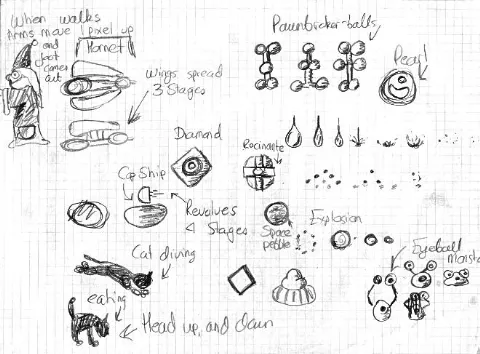 When walks
Arms move
and
foot
comes
out
pixel up
Hornet
Wings spread
3 Stages
Pawnbroker-balls
Pearl
Diamond
Cap Ship
Revolves
4 Stages
Space
pebble
Explosion
Eyeball
Cat diving
eating
Head up, and down